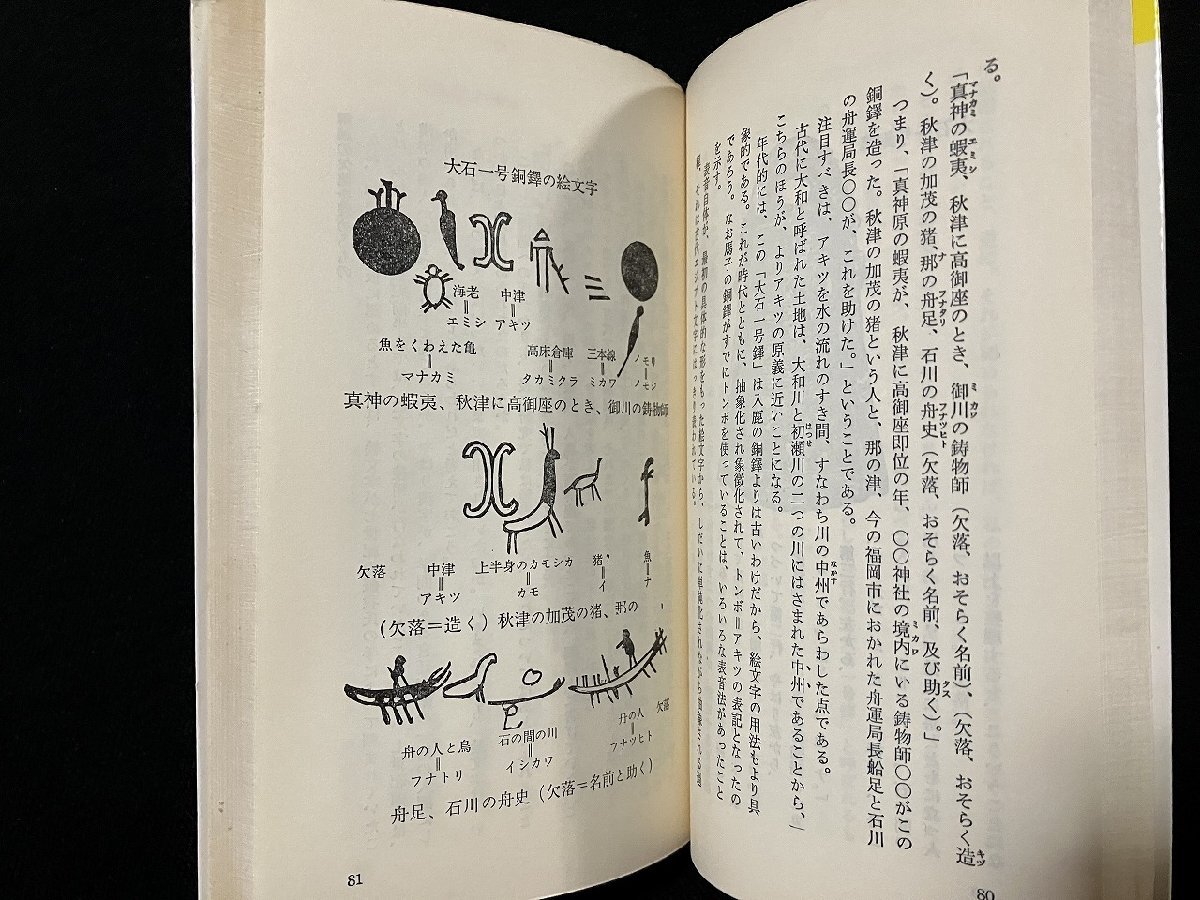 る。
「真神の蝦夷、秋津に高御座のとき、御川の鋳物師（欠落、おそらく名前）、（欠落、おそらく造
マナカミ エミシ ミカワ キヅ
く）。秋津の加茂の猪、那の舟足、石川の舟史（欠落、おそらく名前、及び助く）。」
ナ アナタリ フナツヒト タス
つまり、「真神原の蝦夷が、秋津に高御座即位の年、〇〇神社の境内にいる鋳物師〇〇がこの
ミカワ
銅鐸を造った。秋津の加茂の猪という人と、那の津、今の福岡市におかれた舟運局長船足と石川
の舟運局長〇〇が、これを助けた。」ということである。
注目すべきは、アキツを水の流れのすき間、すなわち川の中州であらわした点である。
なかす
古代に大和と呼ばれた土地は、大和川と初瀬川の二つの川にはさまれた中州であることから、
はつせ
こちらのほうが、よりアキツの原義に近いことになる。
年代的には、この「大石一号鐸」は入鹿の銅鐸よりは古いわけだから、絵文字の用法もより具
象的である。これが時代とともに、抽象化され象徴化されて、トンボ＝アキツの表記となったの
であろう。なお馬子の銅鐸がすでにトンボを使っていることは、いろいろな表音法があったこと
を示す。
表音自体が、最初の具体的な形をもった絵文字から、しだいに単純化されながら抽象される過
80
大石一号銅鐸の絵文字
海老
＝
エミシ
中津
＝
アキツ
魚をくわえた亀
＝
マナカミ
高床倉庫
＝
タカミクラ
三本線
＝
ミカワ
真神の蝦夷、秋津に高御座のとき、御川の鋳物師
欠落
中津
＝
アキツ
上半身のカモシカ
＝
カモ
猪
＝
イ
魚
＝
ナ
（欠落＝造く）秋津の加茂の猪、那の
舟の人と鳥
＝
フナトリ
石の間の川
＝
イシカワ
舟の人
＝
フナツヒト
欠落
舟足、石川の舟史（欠落＝名前と助く）
81